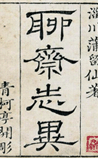 淄川蒲留仙著
聊齋志異
青柯亭開雕